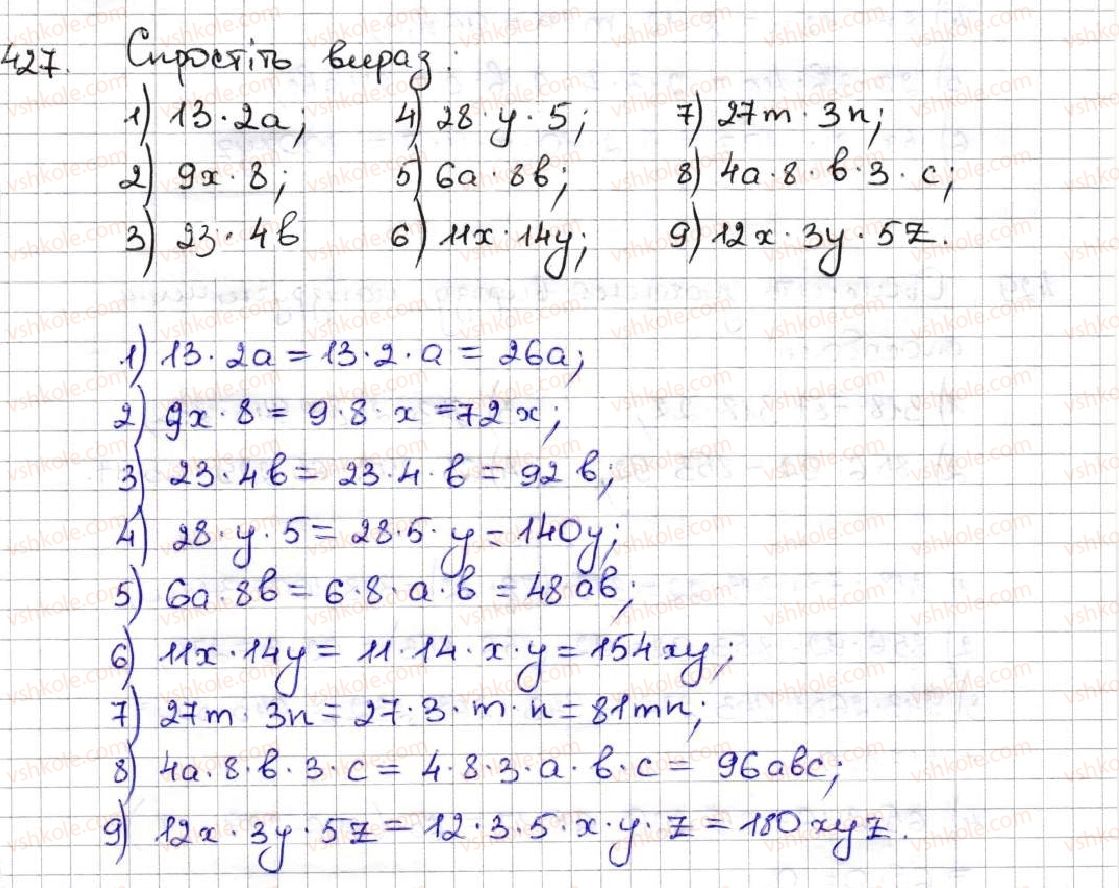 427. Спростіть вираз:
1) 13·2a; 4) 28·y·5; 7) 27m·3n;
2) 9x·8; 5) 6a·8b; 8) 4a·8·b·3·c;
3) 23·4b 6) 11x·14y; 9) 12x·3y·5z.
1) 13·2a = 13·2·a = 26a;
2) 9x·8 = 9·8·x = 72x;
3) 23·4b = 23·4·b = 92b;
4) 28·y·5 = 28·5·y = 140y;
5) 6a·8b = 6·8·a·b = 48ab;
6) 11x·14y = 11·14·x·y = 154xy;
7) 27m·3n = 27·3·m·n = 81mn;
8) 4a·8·b·3·c = 4·8·3·a·b·c = 96abc;
9) 12x·3y·5z = 12·3·5·x·y·z = 180xyz.